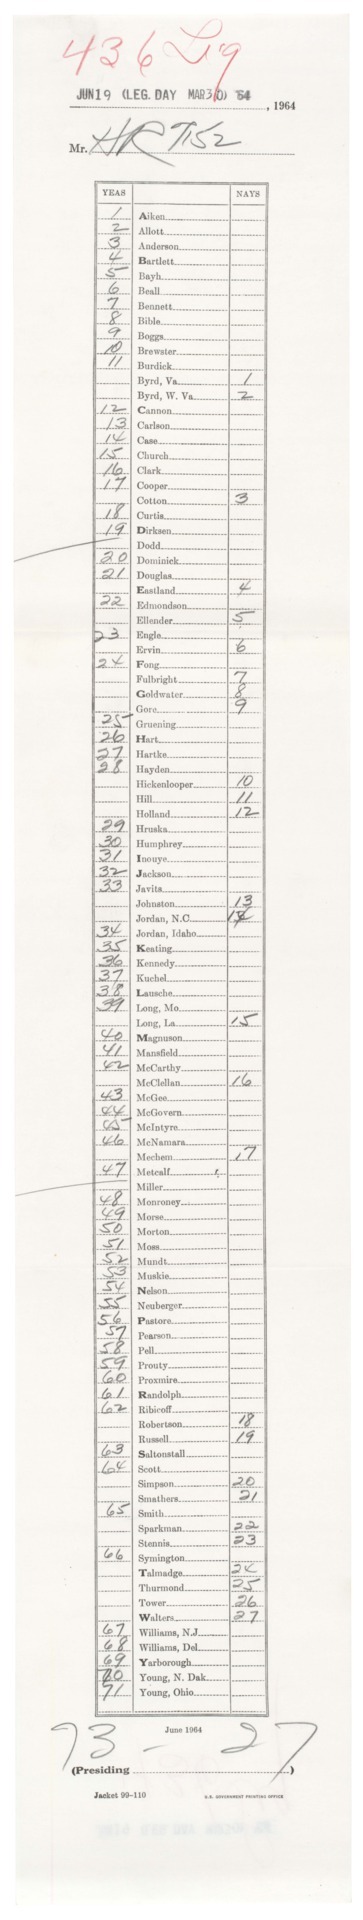 436 Leg
JUN 19 (LEG. DAY MAR 30) '64
, 1964
Mr. HR 7152
YEAS NAYS
1 Aiken
2 Allott
3 Anderson
4 Bartlett
5 Bayh
6 Beall
7 Bennett
8 Bible
9 Boggs
10 Brewster
11 Burdick
Byrd, Va. 1
Byrd, W. Va. 2
12 Cannon
13 Carlson
14 Case
15 Church
16 Clark
17 Cooper
Cotton 3
18 Curtis
19 Dirksen
Dodd
20 Dominick
21 Douglas
Eastland 4
22 Edmondson
Ellender 5
23 Engle
Ervin 6
24 Fong
Fulbright 7
Goldwater 8
Gore 9
25 Gruening
26 Hart
27 Hartke
28 Hayden
Hickenlooper 10
Hill 11
Holland 12
29 Hruska
30 Humphrey
31 Inouye
32 Jackson
33 Javits
Johnston 13
Jordan, N.C. 14
34 Jordan, Idaho
35 Keating
36 Kennedy
37 Kuchel
38 Lausche
39 Long, Mo.
Long, La. 15
40 Magnuson
41 Mansfield
42 McCarthy
McClellan 16
43 McGee
44 McGovern
45 McIntyre
46 McNamara
Mechem 17
47 Metcalf
Miller
48 Monroney
49 Morse
50 Morton
51 Moss
52 Mundt
53 Muskie
54 Nelson
55 Neuberger
56 Pastore
57 Pearson
58 Pell
59 Prouty
60 Proxmire
61 Randolph
62 Ribicoff
Robertson 18
Russell 19
63 Saltonstall
64 Scott
Simpson 20
Smathers 21
65 Smith
Sparkman 22
Stennis 23
66 Symington
Talmadge 24
Thurmond 25
Tower 26
Walters 27
67 Williams, N.J.
68 Williams, Del.
69 Yarborough
70 Young, N. Dak.
71 Young, Ohio
June 1964
73 – 27
(Presiding )
Jacket 99–110 U.S. GOVERNMENT PRINTING OFFICE